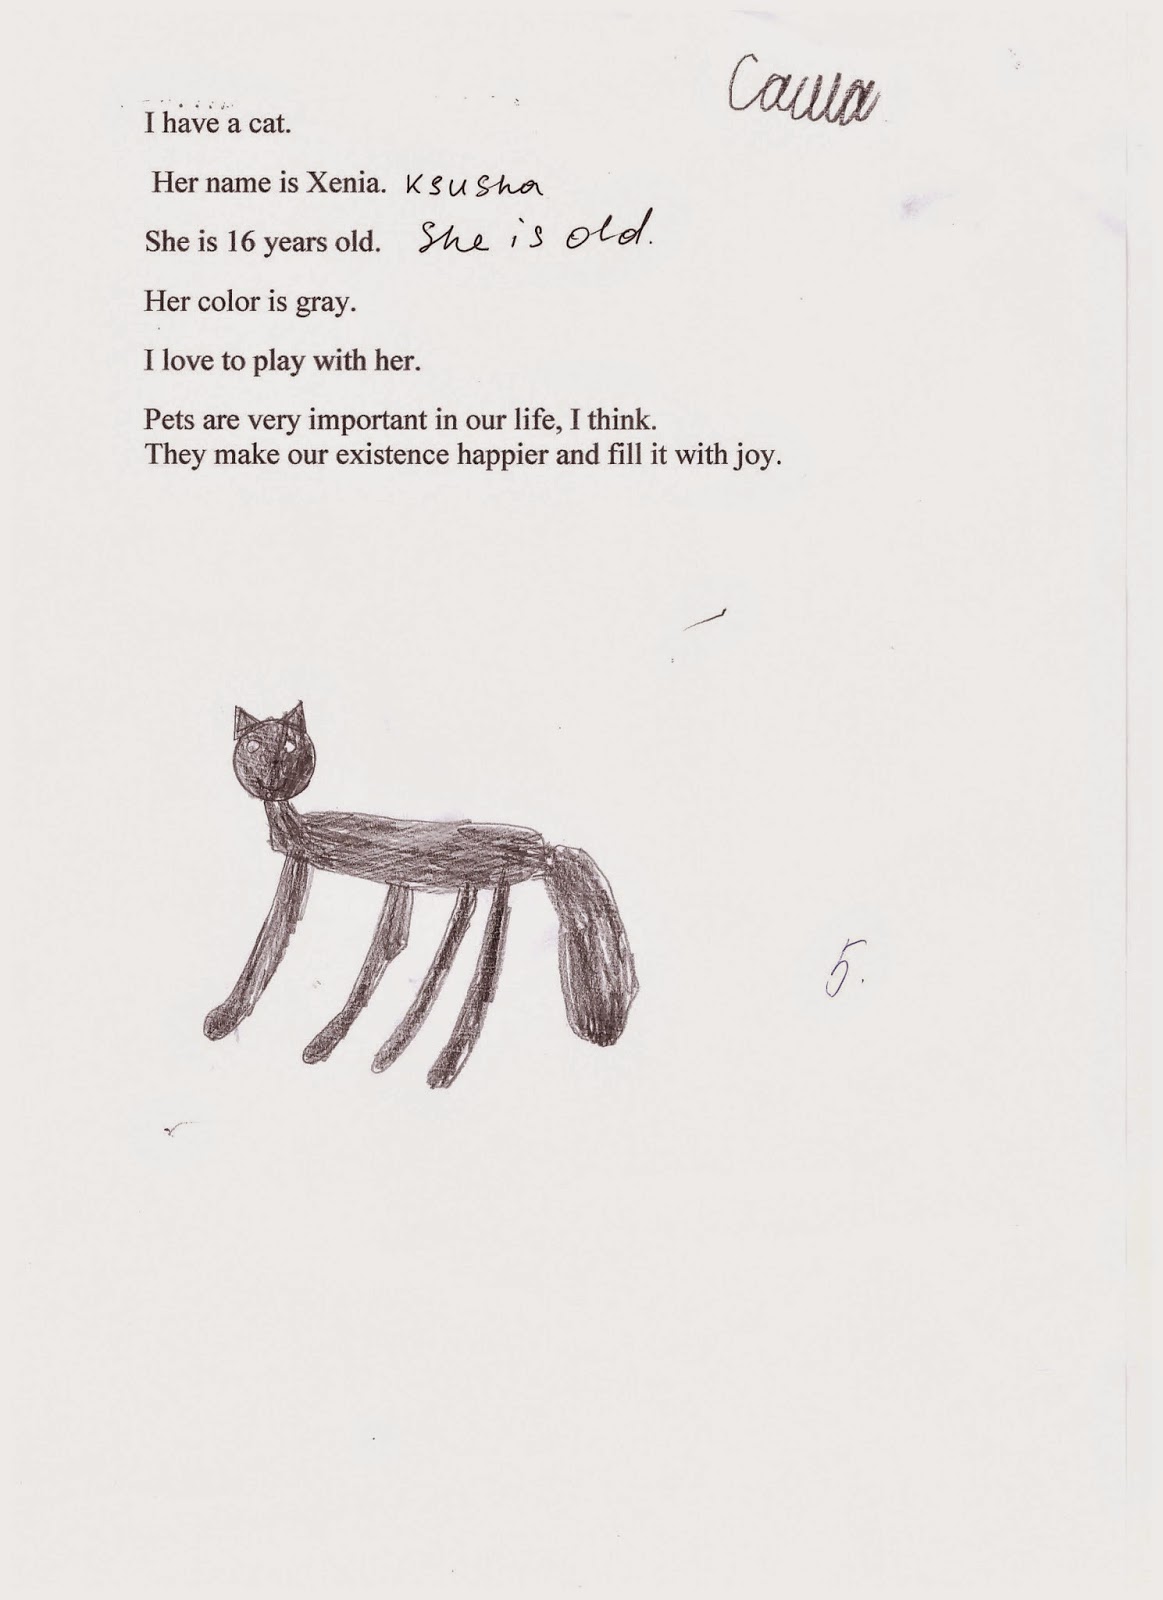 Саша
I have a cat.
Her name is Xenia. Ksusha
She is 16 years old. She is old.
Her color is gray.
I love to play with her.
Pets are very important in our life, I think.
They make our existence happier and fill it with joy.
5.